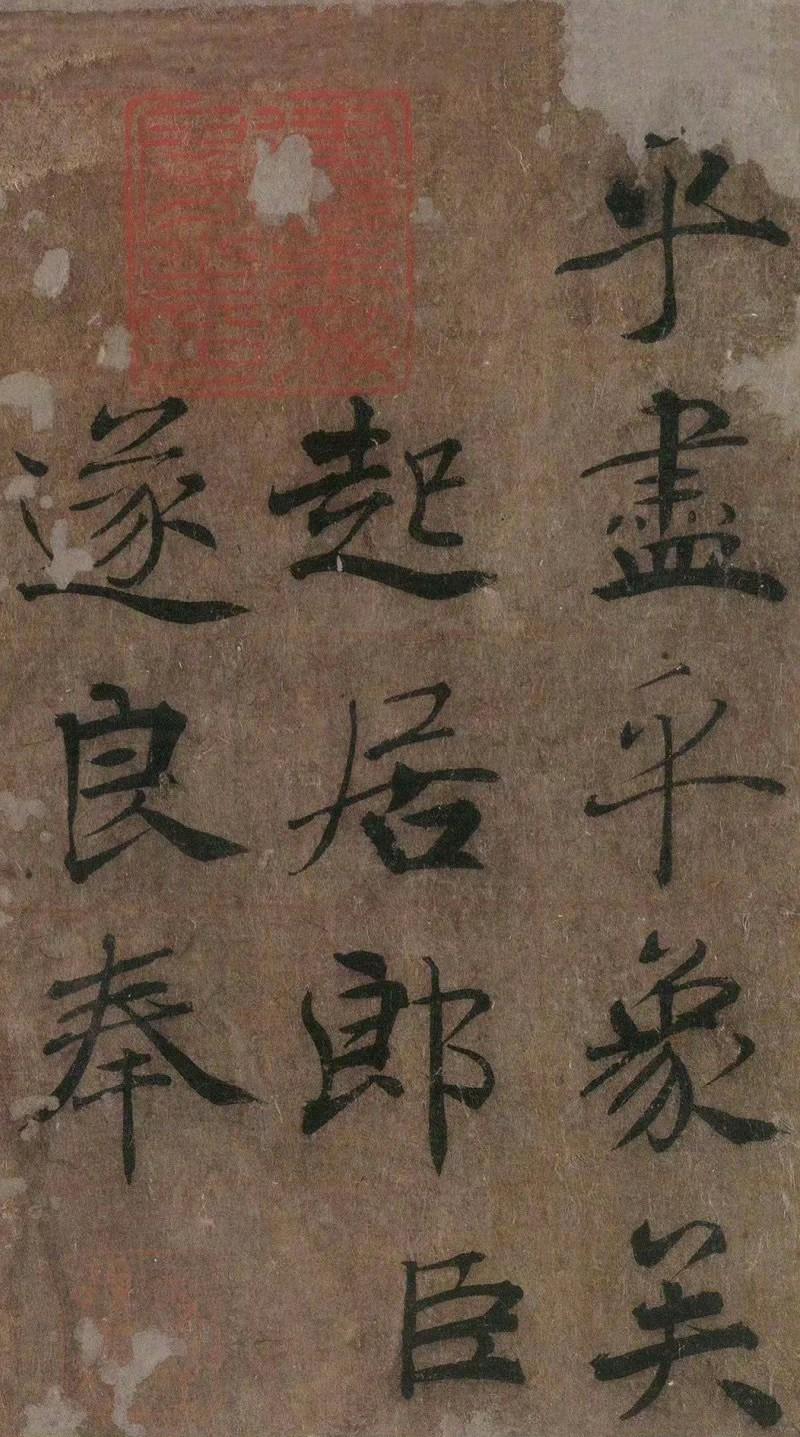 乎盡乎象矣
起居郎臣
遂良奉